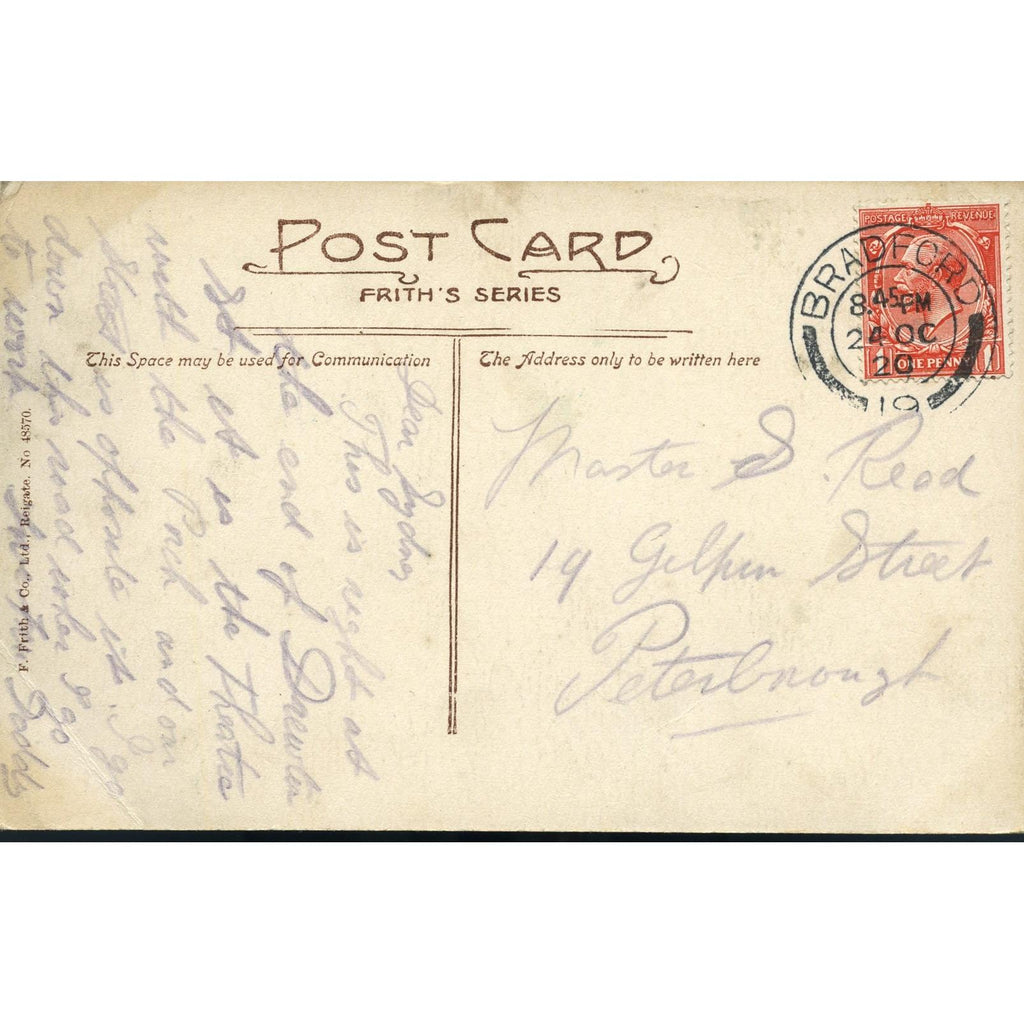 POST CARD
FRITH'S SERIES
This Space may be used for Communication
The Address only to be written here
POSTAGE REVENUE
ONE PENNY
BRADFORD
8.45 PM
24 OC
20
19
Master S. Read
19 Gilpin Street
Peterborough
Dear Sydney,
This is right at
the end of
St it is the Theatre
with the and on
Street is opposite it. I go
down this road when I go
to work
F. Frith & Co., Ltd., Reigate. No 48570.